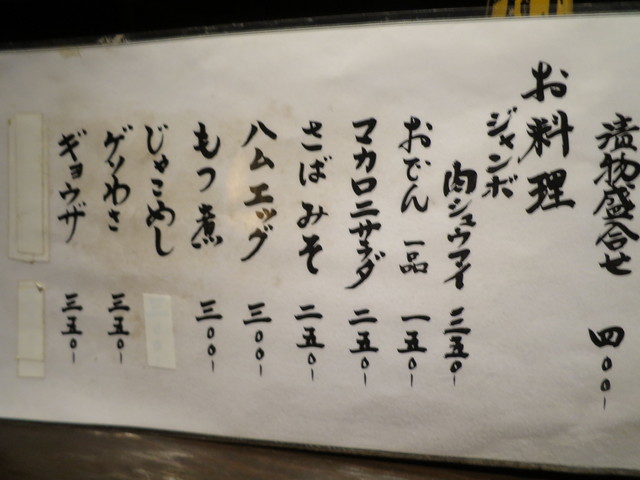 漬物盛合せ 四〇〇-
お料理
ジャンボ
肉シュウマイ 三五〇-
おでん 一品 一五〇-
マカロニサラダ 二五〇-
さばみそ 二五〇-
ハムエッグ 三〇〇-
もつ煮 三〇〇-
じゃこめし
ゲソわさ 三五〇-
ギョウザ 三五〇-